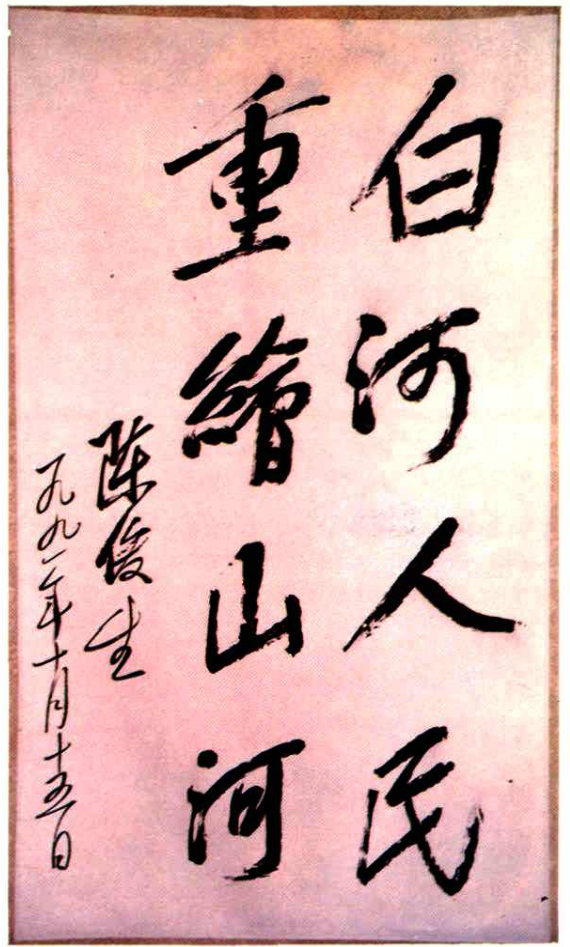 白河人民
重繪山河
陈俊生
一九九一年十月十五日